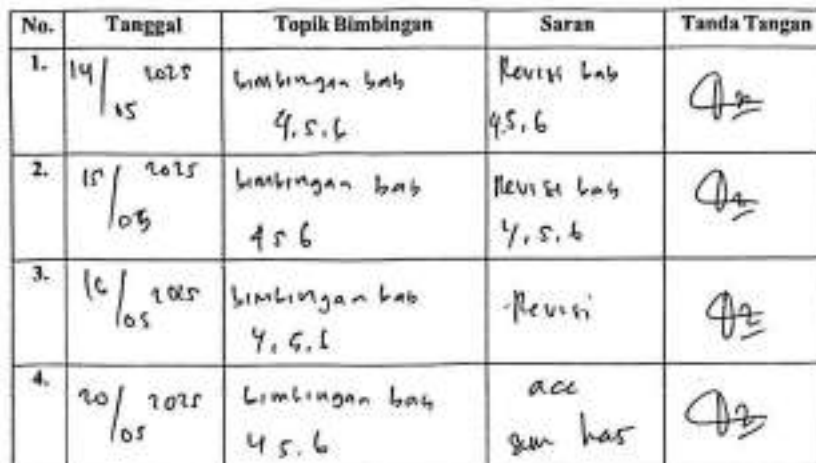 No. Tanggal Topik Bimbingan Saran Tanda Tangan
1. 14/05 2025 bimbingan bab 4,5,6 Revisi bab 4,5,6
2. 15/05 2025 bimbingan bab 4 5 6 Revisi bab 4,5,6
3. 16/05 2025 bimbingan bab 4,5,6 Revisi
4. 20/05 2025 bimbingan bab 4 5.6 acc sem has